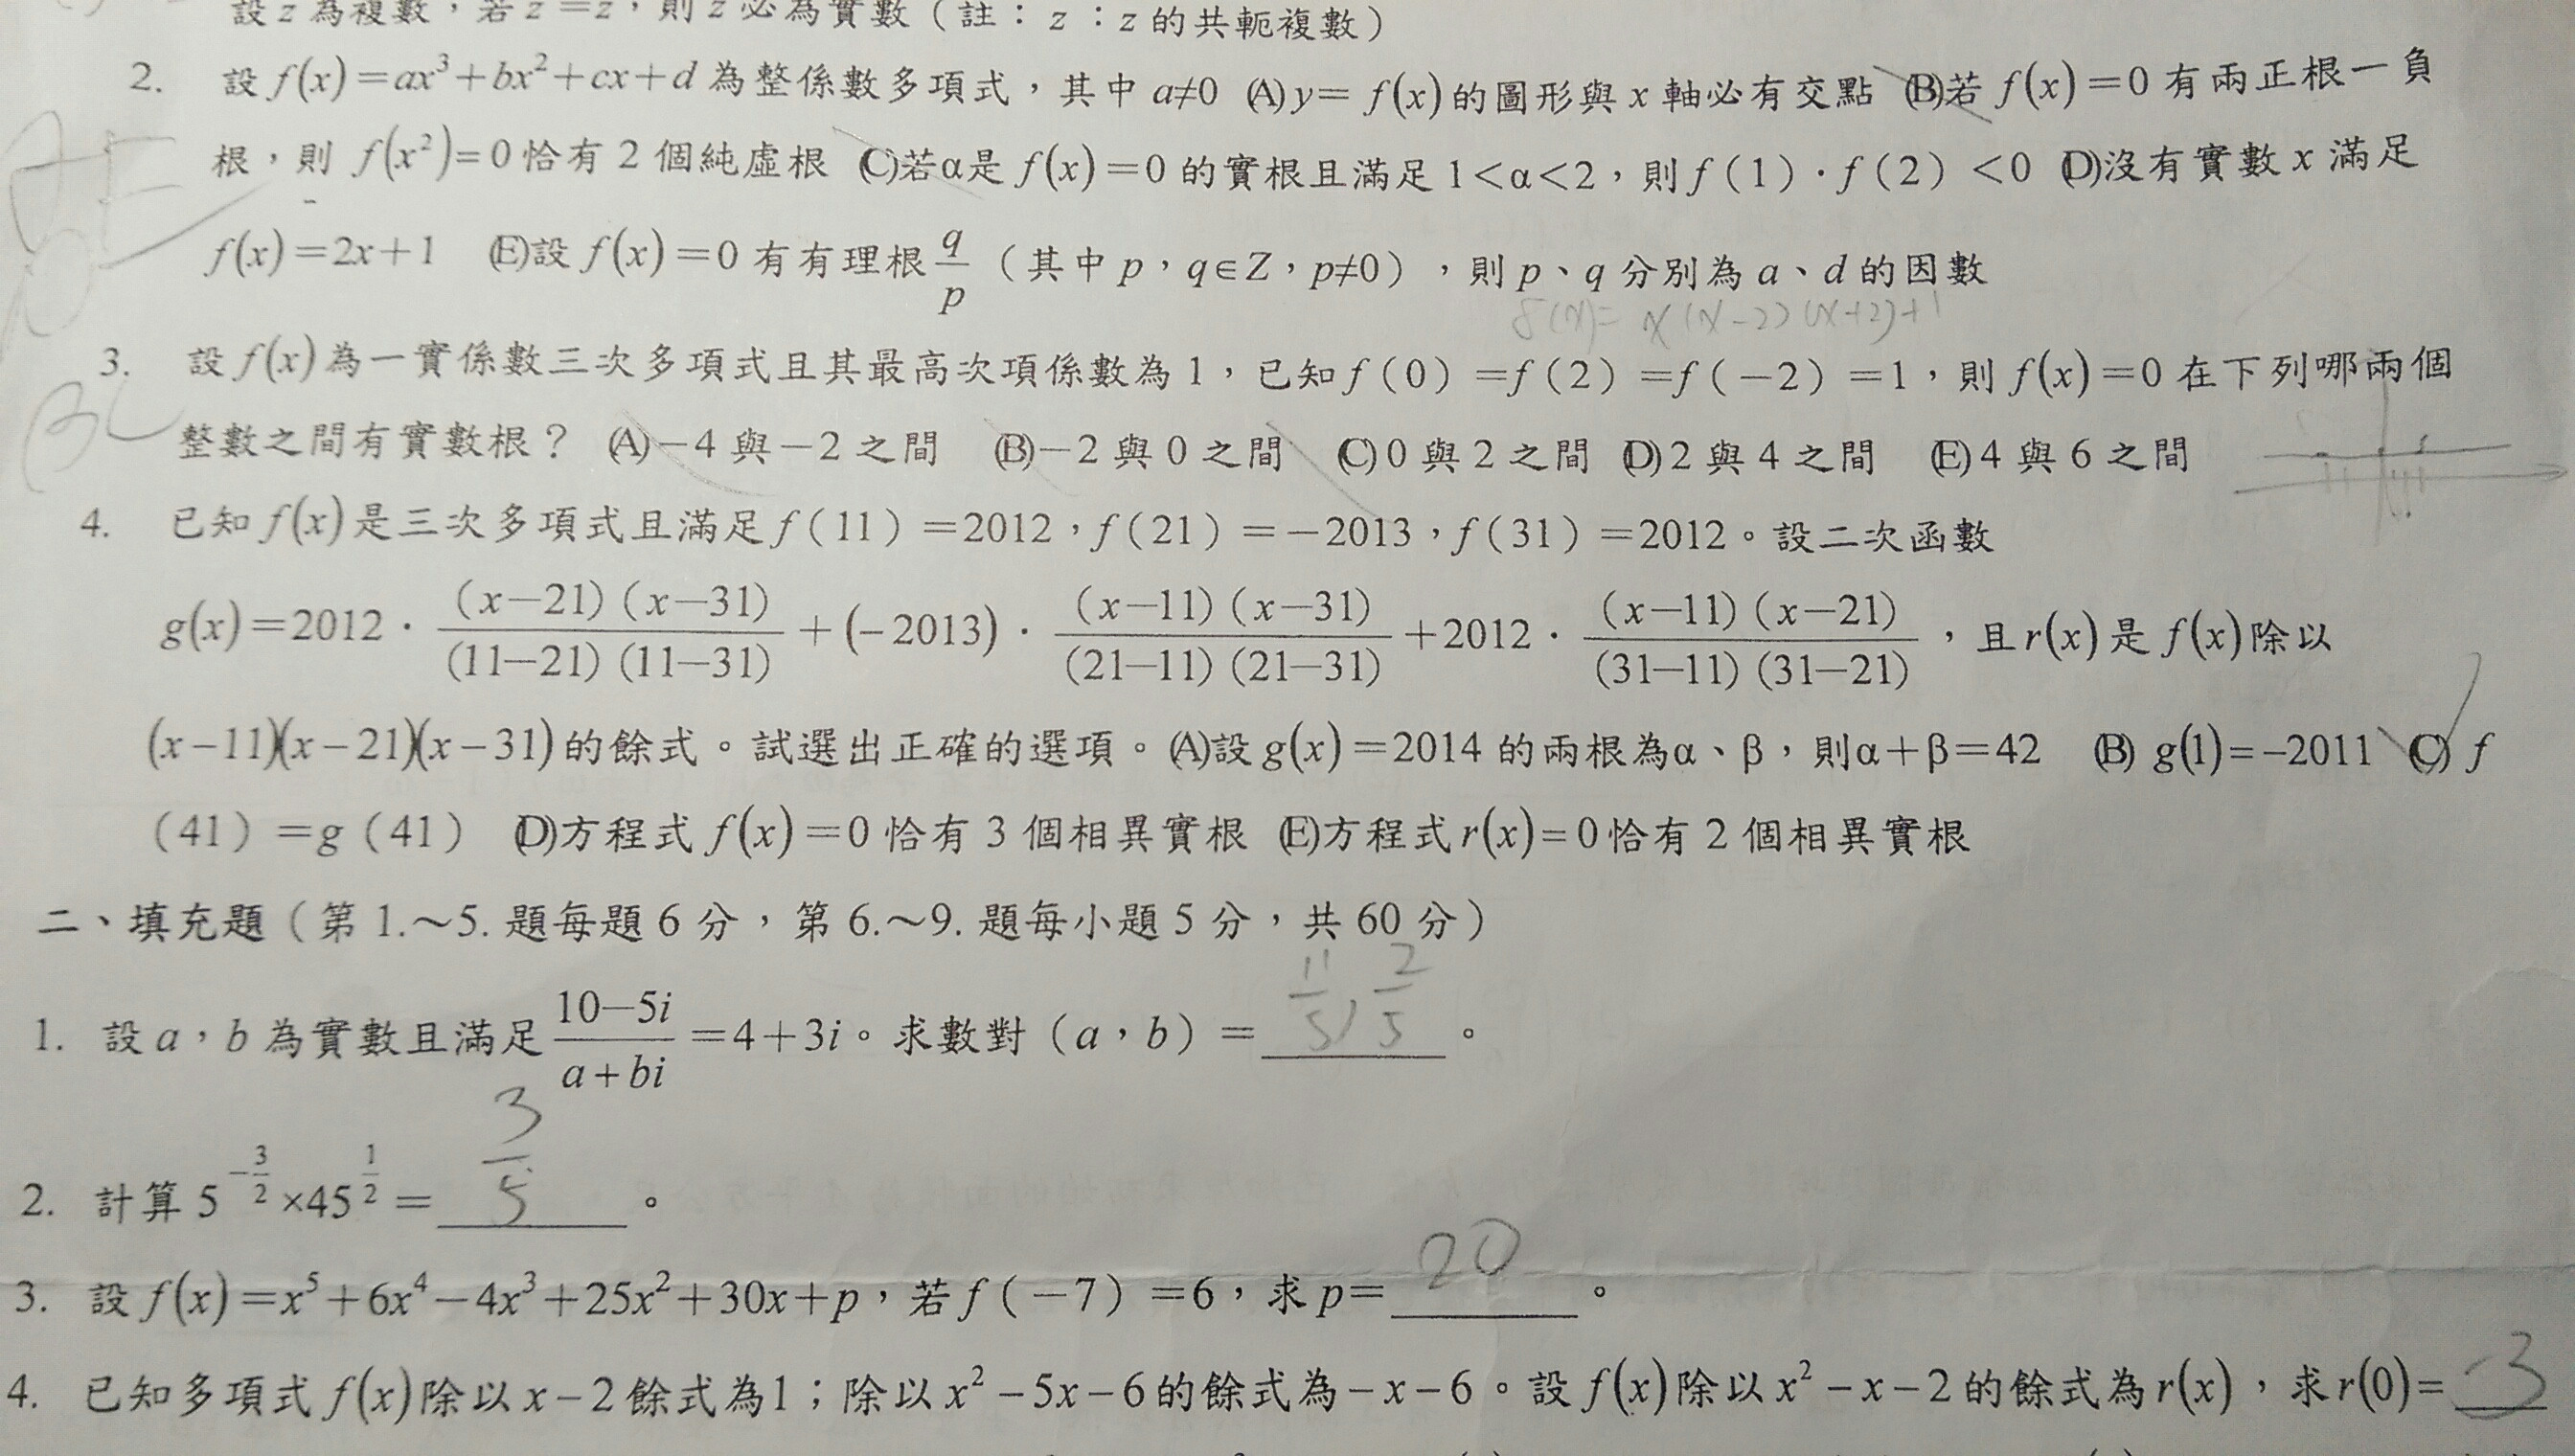 設 z 為複數，若 z̄＝z，則 z 必為實數（註：z̄：z 的共軛複數）
2. 設 f(x)＝ax³＋bx²＋cx＋d 為整係數多項式，其中 a≠0 (A) y＝ f(x) 的圖形與 x 軸必有交點 (B)若 f(x)＝0 有兩正根一負
根，則 f(x²)＝0 恰有 2 個純虛根 (C)若α是 f(x)＝0 的實根且滿足 1＜α＜2，則 f（1）·f（2）＜0 (D)沒有實數 x 滿足
f(x)＝2x＋1 (E)設 f(x)＝0 有有理根 q/p （其中 p，q∈Z，p≠0），則 p、q 分別為 a、d 的因數
f(x)= x(x-2)(x+2)+1
3. 設 f(x) 為一實係數三次多項式且其最高次項係數為 1，已知 f（0）＝f（2）＝f（－2）＝1，則 f(x)＝0 在下列哪兩個
BC
整數之間有實數根？ (A)－4 與－2 之間 (B)－2 與 0 之間 (C) 0 與 2 之間 (D) 2 與 4 之間 (E) 4 與 6 之間
4. 已知 f(x) 是三次多項式且滿足 f（11）＝2012，f（21）＝－2013，f（31）＝2012。設二次函數
g(x)＝2012 · (x－21)(x－31)/(11－21)(11－31) ＋(－2013) · (x－11)(x－31)/(21－11)(21－31) ＋2012 · (x－11)(x－21)/(31－11)(31－21)，且 r(x) 是 f(x) 除以
(x－11)(x－21)(x－31) 的餘式。試選出正確的選項。(A)設 g(x)＝2014 的兩根為α、β，則α＋β＝42 (B) g(1)＝－2011 (C) f
（41）＝g（41） (D)方程式 f(x)＝0 恰有 3 個相異實根 (E)方程式 r(x)＝0 恰有 2 個相異實根
二、填充題（第 1.～5. 題每題 6 分，第 6.～9. 題每小題 5 分，共 60 分）
1. 設 a，b 為實數且滿足 (10－5i)/(a＋bi) ＝4＋3i。求數對（a，b）＝ 11/5, 2/5 。
2. 計算 5^(－3/2) ×45^(1/2) ＝ 3/5 。
3. 設 f(x)＝x⁵＋6x⁴－4x³＋25x²＋30x＋p，若 f（－7）＝6，求 p＝ 20 。
4. 已知多項式 f(x) 除以 x－2 餘式為1；除以 x²－5x－6 的餘式為－x－6。設 f(x) 除以 x²－x－2 的餘式為 r(x)，求 r(0)＝ -3